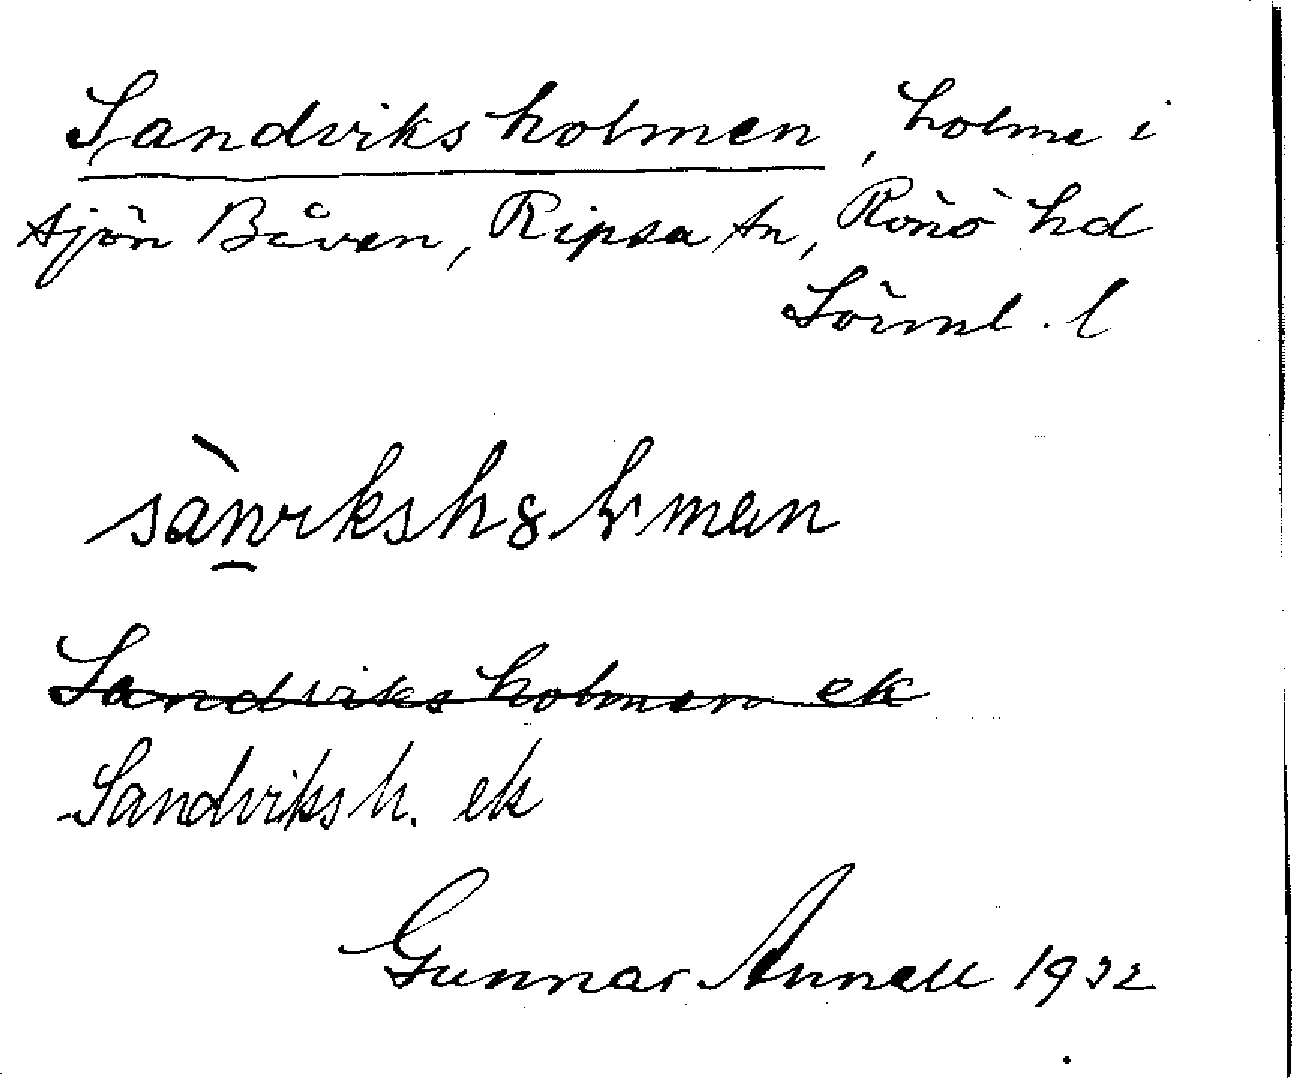 Sandviksholmen, holme i
sjön Båven, Ripsa sn, Rönö hd
Sörml. l
Sandviksholmen ek
Sandviksh. ek
Gunnar Annell 1932